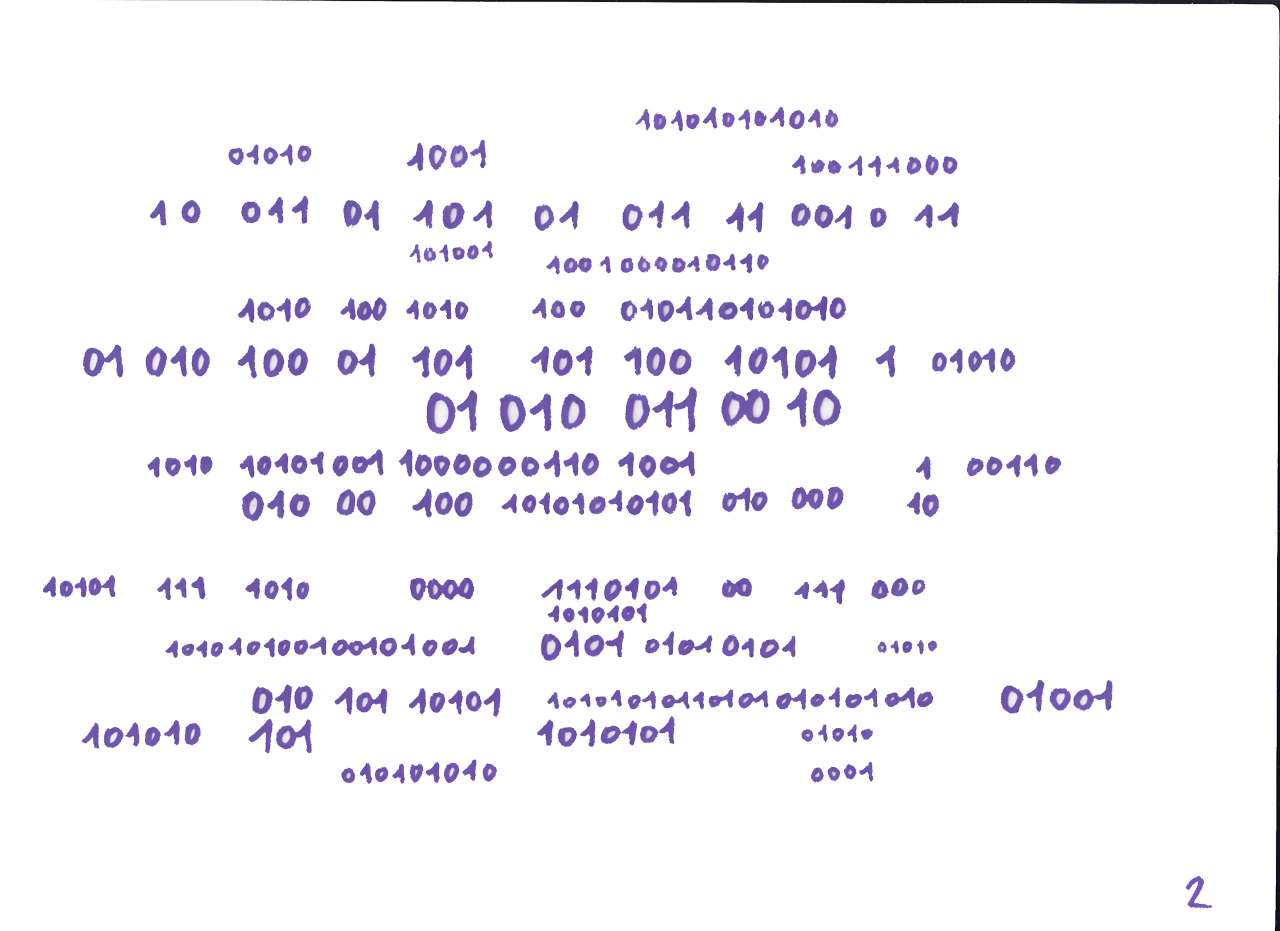 101010101010
01010 1001
100111000
10 011 01 101 01 011 11 001 0 11
101001
1001000010110
1010 100 1010 100 010110101010
01 010 100 01 101 101 100 10101 1 01010
01 010 011 00 10
1010 10101001 1000000110 1001 1 00110
010 00 100 10101010101 010 000 10
10101 111 1010 0000 1110101 00 111 000
1010101
101010100100101001 0101 01010101 01010
010 101 10101 101010101101010101010 01001
101010 101 1010101 01010
010101010 0001
2